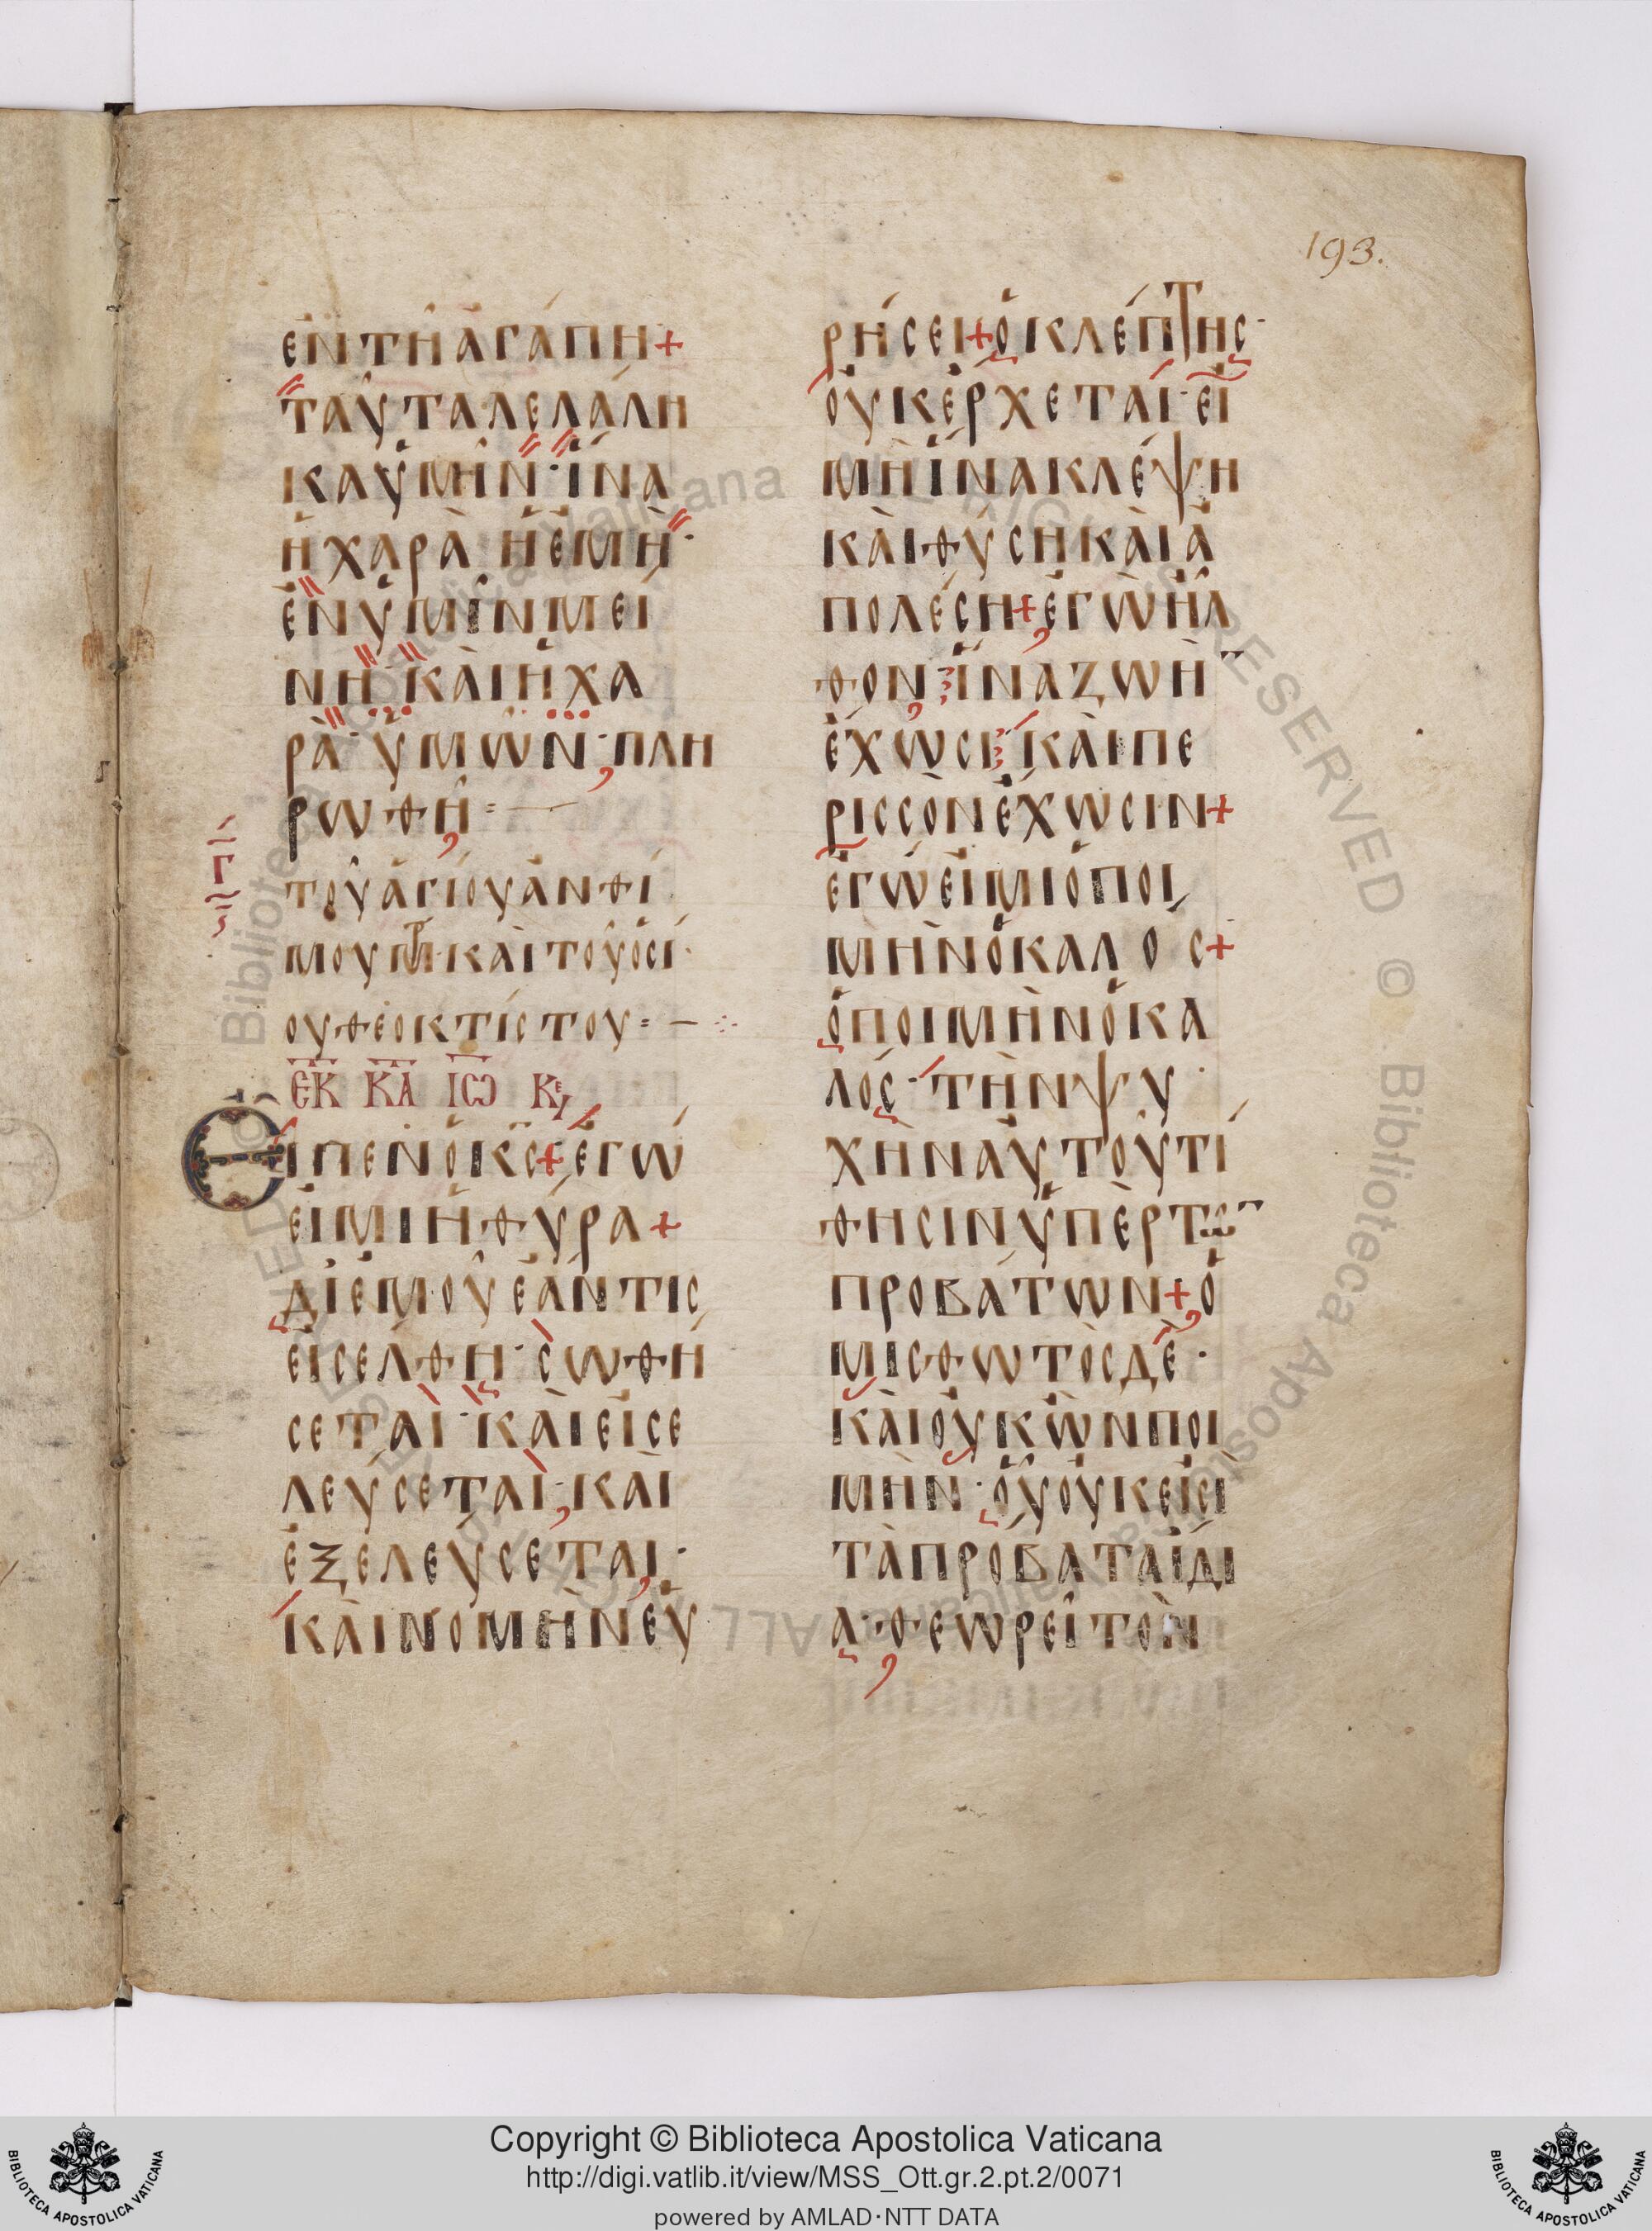 193.
ἐν τῆ ἀγάπη+
ταῦτα λελάλη
κα ὑμῖν· ἵνα
ἡ χαρὰ ἡ ἐμὴ·
ἐν ὑμῖν μεί
νη· καὶ ἡ χα
ρὰ· ὑμῶν· πλη
ρωθῆ
τοῦ ἁγίου ἀνθί
μου καὶ τοῦ ὁσί
ου θεοκτίστου
ЄΚ ΚΑ ΙΩ Κε
Εἶπεν ὁ κς+ ἐγώ
εἰμι ἡ θύρα+
δι ἐμοῦ ἐάν τις
εἰσέλθη· σωθή
σεται· καὶ εἰσε
λεύσεται, καὶ
ἐξελεύσεται·
καὶ νομὴν εὑ
ρήσει+ ὁ κλέπτης·
οὐκ ἔρχεται· εἰ
μὴ ἵνα κλέψη
καὶ θύση καὶ ἀ
πολέση+ ἐγὼ ἦλ
θον ἵνα ζωὴ¯
ἔχωσι καὶ πε
ρισσὸν ἔχωσιν+
ἐγώ εἰμι ὁ ποι
μὴν ὁ καλος+
ὁ ποιμὴν ὁ κα
λός· τὴν ψυ
χὴν αὐτοῦ τί
θησιν ὑπὲρ τω¯
προβάτων+ ὁ
μισθωτὸς δὲ·
καὶ οὐκ ὢν ποι
μήν· οὗ οὐκ εἰσὶ
τὰ πρόβατα ἴδι
α· θεωρεῖ τὸν
Copyright © Biblioteca Apostolica Vaticana
http://digi.vatlib.it/view/MSS_Ott.gr.2.pt.2/0071
powered by AMLAD·NTT DATA
BIBLIOTECA APOSTOLICA VATICANA
BIBLIOTECA APOSTOLICA VATICANA